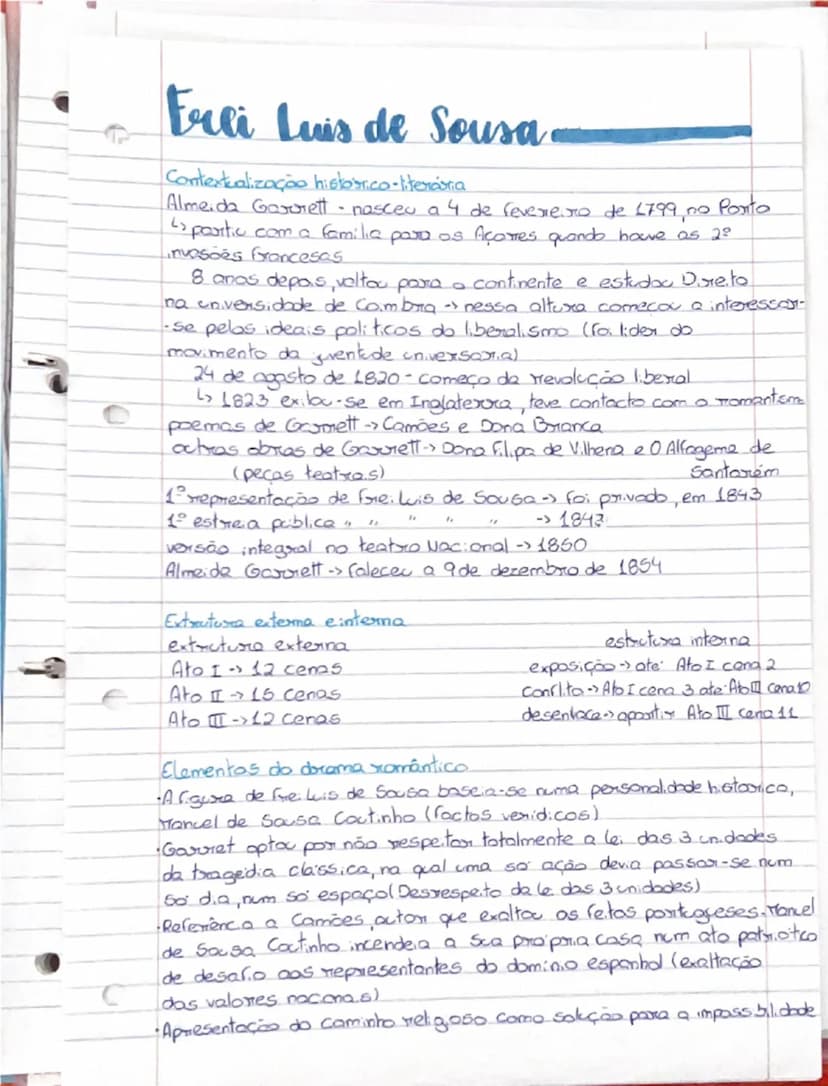 Frei Luis de Sousa
Contextualização histórico-literária
Almeida Garrett - nasceu a 4 de fevereiro de 1799, no Porto
↳ partiu com a família para os Açores quando houve as 2ª
invasões francesas
8 anos depois, voltou para o continente e estudou Direito
na universidade de Coimbra -> nessa altura começou a interessar-
-se pelos ideais políticos do liberalismo (foi líder do
movimento da juventude universária)
24 de agosto de 1820 - começo da revolução liberal
↳ 1823 exilou-se em Inglaterra, teve contacto com o romantismo
poemas de Garrett -> Camões e Dona Branca
outras obras de Garrett -> Dona Filipa de Vilhena e O Alfageme de
(peças teatrais) Santarém
1ª representação de Frei Luis de Sousa -> foi privado, em 1843
1ª estreia pública " " " " " -> 1847
versão integral no teatro Nacional -> 1850
Almeida Garrett -> faleceu a 9 de dezembro de 1854
Extrutura externa e interna
extrutura externa estrutura interna
Ato I -> 12 cenas exposição -> até Ato I cena 2
Ato II -> 15 cenas conflito -> Ato I cena 3 até Ato III cena 10
Ato III -> 12 cenas desenlace -> apartir Ato III cena 11
Elementos do drama romântico
• A figura de Frei Luis de Sousa baseia-se numa personalidade histórica,
Manuel de Sousa Coutinho (factos verídicos)
• Garret optou por não respeitar totalmente a lei das 3 unidades
da tragédia clássica, na qual uma só ação devia passar-se num
só dia, num só espaço (Desrespeito da lei das 3 unidades)
• Referência a Camões, autor que exaltou os feitos portugeses. Manuel
de Sousa Coutinho incendeia a sua própria casa num ato patriótico
de desafio aos representantes do domínio espanhol (exaltação
dos valores nacionais)
• Apresentação do caminho religioso como solução para a impossibilidade